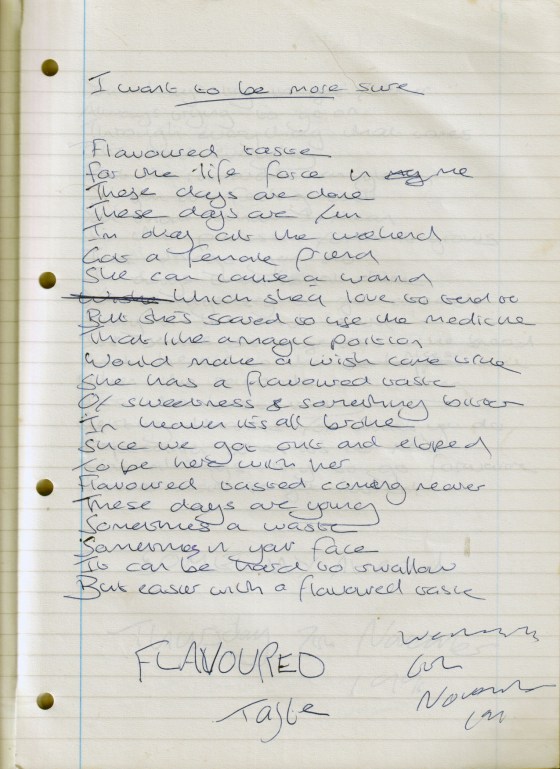 I want to be more sure
Flavoured taste
for the life force in me
These days are done
These days are fun
I'm okay at the weekend
Got a female friend
She can cause a wound
Which she'd love to tend to
But she's scared to use the medicine
That like a magic portion
Would make a wish come true
She has a flavoured taste
Of sweetness & something bitter
In heaven it's all broke
Since we got out and eloped
to be here with her
Flavoured tasted coming nearer
These days are young
Sometimes a waste
Sometimes in your face
It can be hard to swallow
But easier with a flavoured taste
FLAVOURED
Taste
November